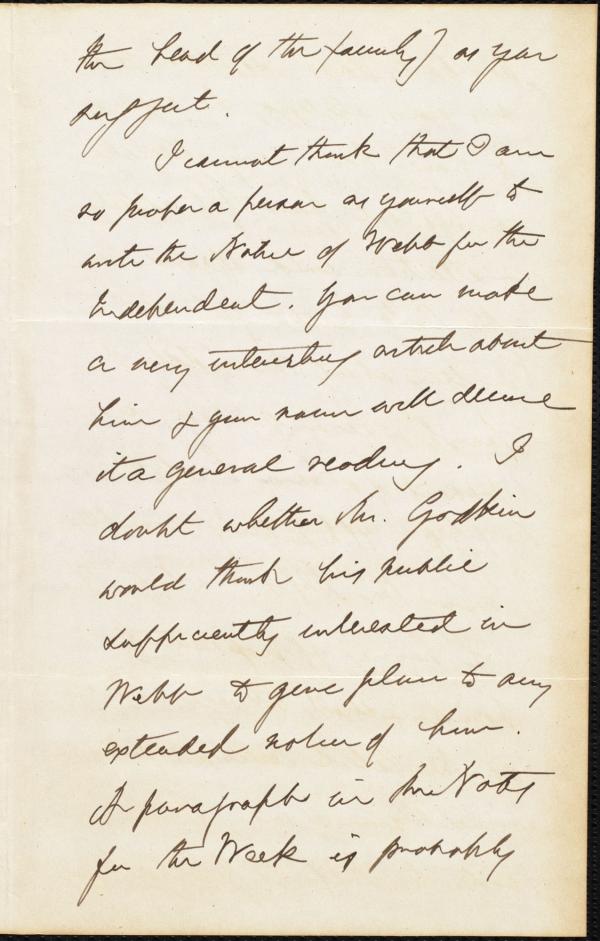 the head of the family] as you
suggest.
I cannot think that I am
so proper a person as yourself to
write the Notice of Webb for the
Independent. You can make
a very interesting article about
him & your name will secure
it a general reading. I
doubt whether Mr. Godkin
would think his public
sufficiently interested in
Webb to give place to any
extended notice of him.
A paragraph in the Notes
for the Week is probably